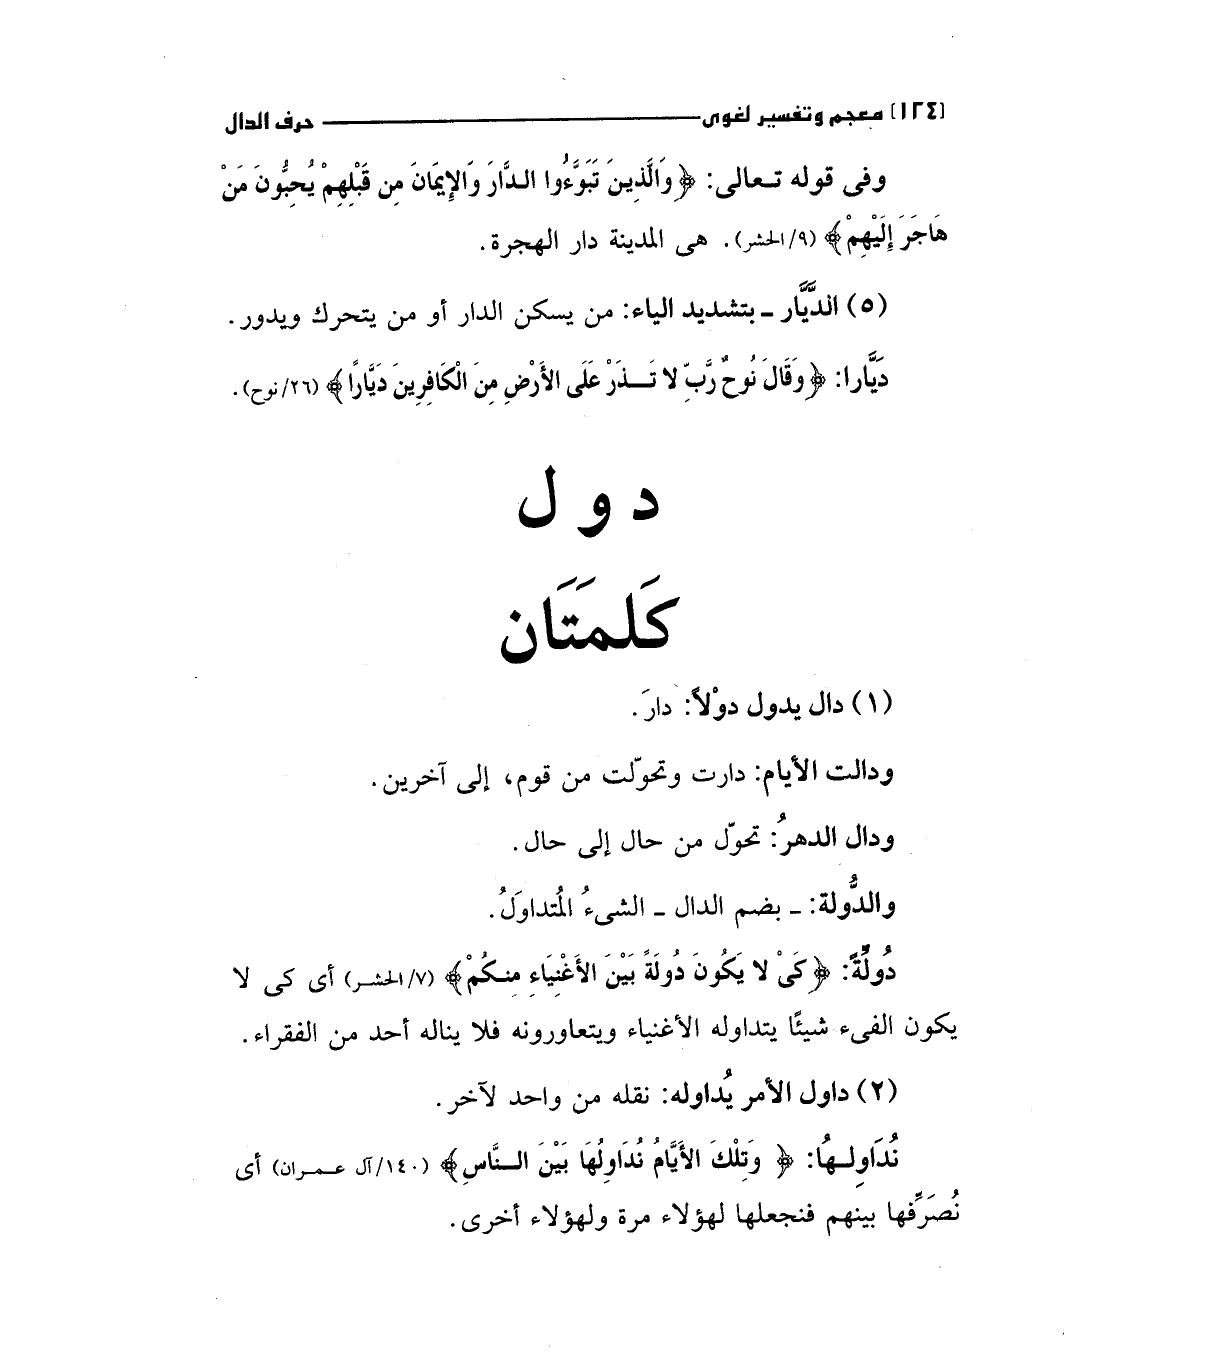 [١٢٤] معجم وتفسير لغوى ـــــــــــــ حرف الدال
وفى قوله تـعالى: ﴿وَالَّذِينَ تَبَوَّءُوا الـدَّارَ وَالإِيمَانَ مِن قَبْلِهِمْ يُحِبُّونَ مَنْ
هَاجَرَ إِلَيْهِمْ﴾ (٩/الحشر). هى المدينة دار الهجرة.
(٥) الدَّيَّار ـ بتشديد الياء: من يسكن الدار أو من يتحرك ويدور.
دَيَّارا: ﴿وَقَالَ نُوحٌ رَّبِّ لا تَـــذَرْ عَلَى الأَرْضِ مِنَ الْكَافِرِينَ دَيَّارًا﴾ (٢٦/نوح).
د و ل
كَلمَتَان
(١) دال يدول دوْلاً: دارَ.
ودالت الأيام: دارت وتحوّلت من قوم، إلى آخرين.
ودال الدهرُ: تحوّل من حال إلى حال.
والدُّولة: ـ بضم الدال ـ الشىءُ المُتداوَلُ.
دُولَةً: ﴿كَىْ لا يَكُونَ دُولَةً بَيْنَ الأَغْنِيَاءِ مِنـكُمْ﴾ (٧/الحشـر) أى كى لا
يكون الفىء شيئًا يتداوله الأغنياء ويتعاورونه فلا يناله أحد من الفقراء.
(٢) داول الأمر يُداوله: نقله من واحد لآخر.
نُدَاوِلـهُا: ﴿ وَتِلْكَ الأَيَّامُ نُدَاوِلُهَا بَيْنَ الـنَّاسِ﴾ (١٤٠/آل عـمـران) أى
نُصَرِّفها بينهم فنجعلها لهؤلاء مرة ولهؤلاء أخرى.